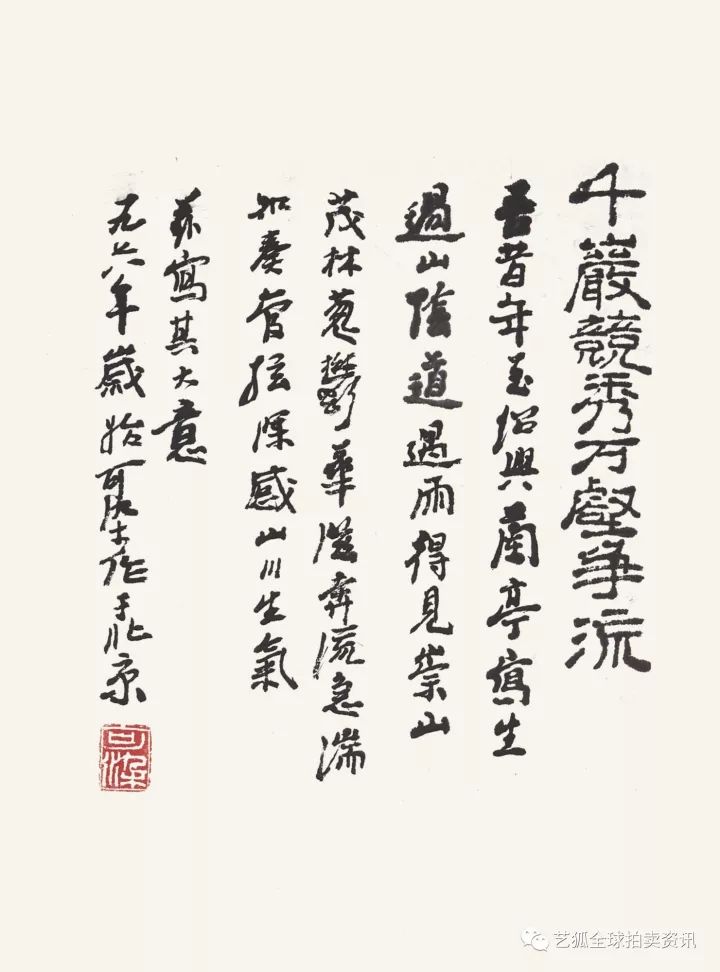 千巖競秀万壑争流
吾昔年至绍興蘭亭寫生
過山陰道遇雨得見崇山
茂林蔥鬱華滋奔流急湍
如奏管弦深感山川生氣
兹寫其大意
一九七八年歲始可染作于北京
可染
艺狐全球拍卖资讯